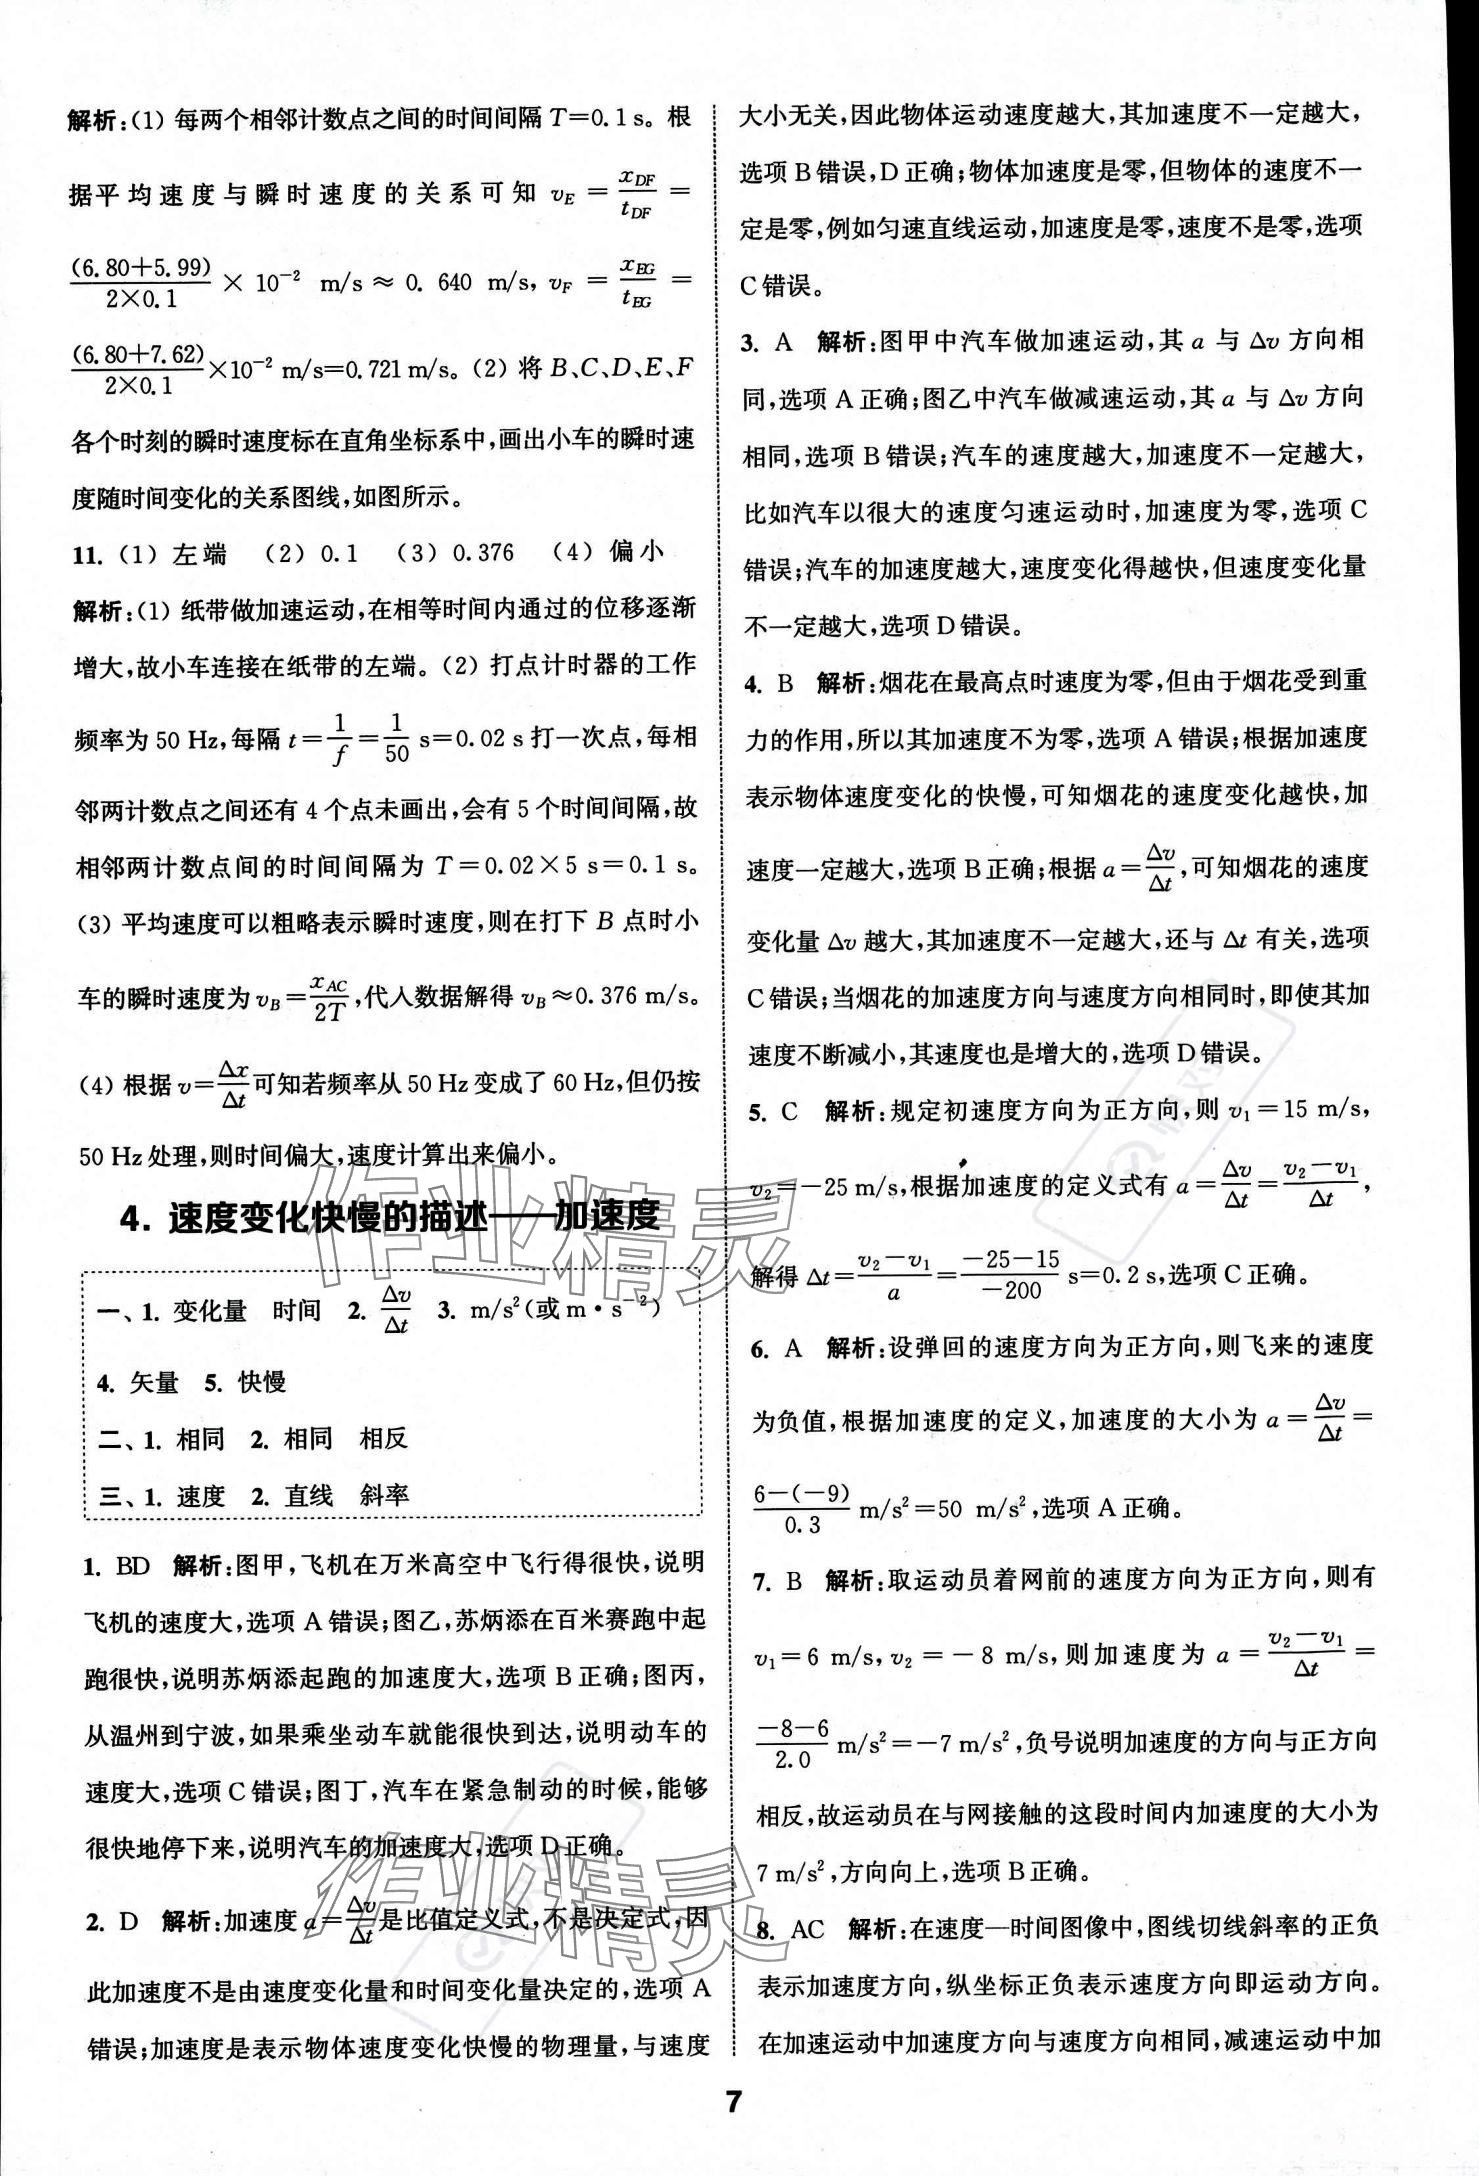 解析:(1) 每两个相邻计数点之间的时间间隔 T=0.1 s。根
据平均速度与瞬时速度的关系可知 v_E = x_DF/t_DF =
(6.80+5.99)/(2×0.1) × 10⁻² m/s ≈ 0.640 m/s, v_F = x_EG/t_EG =
(6.80+7.62)/(2×0.1) ×10⁻² m/s=0.721 m/s。(2) 将 B、C、D、E、F
各个时刻的瞬时速度标在直角坐标系中,画出小车的瞬时速
度随时间变化的关系图线,如图所示。
11. (1) 左端 (2) 0.1 (3) 0.376 (4) 偏小
解析:(1) 纸带做加速运动,在相等时间内通过的位移逐渐
增大,故小车连接在纸带的左端。(2) 打点计时器的工作
频率为 50 Hz,每隔 t=1/f=1/50 s=0.02 s 打一次点,每相
邻两计数点之间还有 4 个点未画出,会有 5 个时间间隔,故
相邻两计数点间的时间间隔为 T=0.02×5 s=0.1 s。
(3) 平均速度可以粗略表示瞬时速度,则在打下 B 点时小
车的瞬时速度为 v_B=x_AC/2T,代入数据解得 v_B≈0.376 m/s。
(4) 根据 v=Δx/Δt 可知若频率从 50 Hz 变成了 60 Hz,但仍按
50 Hz 处理,则时间偏大,速度计算出来偏小。
4. 速度变化快慢的描述——加速度
一、1. 变化量 时间 2. Δv/Δt 3. m/s²(或 m·s⁻²)
4. 矢量 5. 快慢
二、1. 相同 2. 相同 相反
三、1. 速度 2. 直线 斜率
1. BD 解析:图甲,飞机在万米高空中飞行得很快,说明
飞机的速度大,选项 A 错误;图乙,苏炳添在百米赛跑中起
跑很快,说明苏炳添起跑的加速度大,选项 B 正确;图丙,
从温州到宁波,如果乘坐动车就能很快到达,说明动车的
速度大,选项 C 错误;图丁,汽车在紧急制动的时候,能够
很快地停下来,说明汽车的加速度大,选项 D 正确。
2. D 解析:加速度 a=Δv/Δt 是比值定义式,不是决定式,因
此加速度不是由速度变化量和时间变化量决定的,选项 A
错误;加速度是表示物体速度变化快慢的物理量,与速度
大小无关,因此物体运动速度越大,其加速度不一定越大,
选项 B 错误,D 正确;物体加速度是零,但物体的速度不一
定是零,例如匀速直线运动,加速度是零,速度不是零,选项
C 错误。
3. A 解析:图甲中汽车做加速运动,其 a 与 Δv 方向相
同,选项 A 正确;图乙中汽车做减速运动,其 a 与 Δv 方向
相同,选项 B 错误;汽车的速度越大,加速度不一定越大,
比如汽车以很大的速度匀速运动时,加速度为零,选项 C
错误;汽车的加速度越大,速度变化得越快,但速度变化量
不一定越大,选项 D 错误。
4. B 解析:烟花在最高点时速度为零,但由于烟花受到重
力的作用,所以其加速度不为零,选项 A 错误;根据加速度
表示物体速度变化的快慢,可知烟花的速度变化越快,加
速度一定越大,选项 B 正确;根据 a=Δv/Δt,可知烟花的速度
变化量 Δv 越大,其加速度不一定越大,还与 Δt 有关,选项
C 错误;当烟花的加速度方向与速度方向相同时,即使其加
速度不断减小,其速度也是增大的,选项 D 错误。
5. C 解析:规定初速度方向为正方向,则 v₁=15 m/s,
v₂=-25 m/s,根据加速度的定义式有 a=Δv/Δt=(v₂-v₁)/Δt,
解得 Δt=(v₂-v₁)/a=(-25-15)/(-200) s=0.2 s,选项 C 正确。
6. A 解析:设弹回的速度方向为正方向,则飞来的速度
为负值,根据加速度的定义,加速度的大小为 a=Δv/Δt=
(6-(-9))/0.3 m/s²=50 m/s²,选项 A 正确。
7. B 解析:取运动员着网前的速度方向为正方向,则有
v₁=6 m/s,v₂=-8 m/s,则加速度为 a=(v₂-v₁)/Δt=
(-8-6)/2.0 m/s²=-7 m/s²,负号说明加速度的方向与正方向
相反,故运动员在与网接触的这段时间内加速度的大小为
7 m/s²,方向向上,选项 B 正确。
8. AC 解析:在速度—时间图像中,图线切线斜率的正负
表示加速度方向,纵坐标正负表示速度方向即运动方向。
在加速运动中加速度方向与速度方向相同,减速运动中加
7
作业精灵
作业精灵